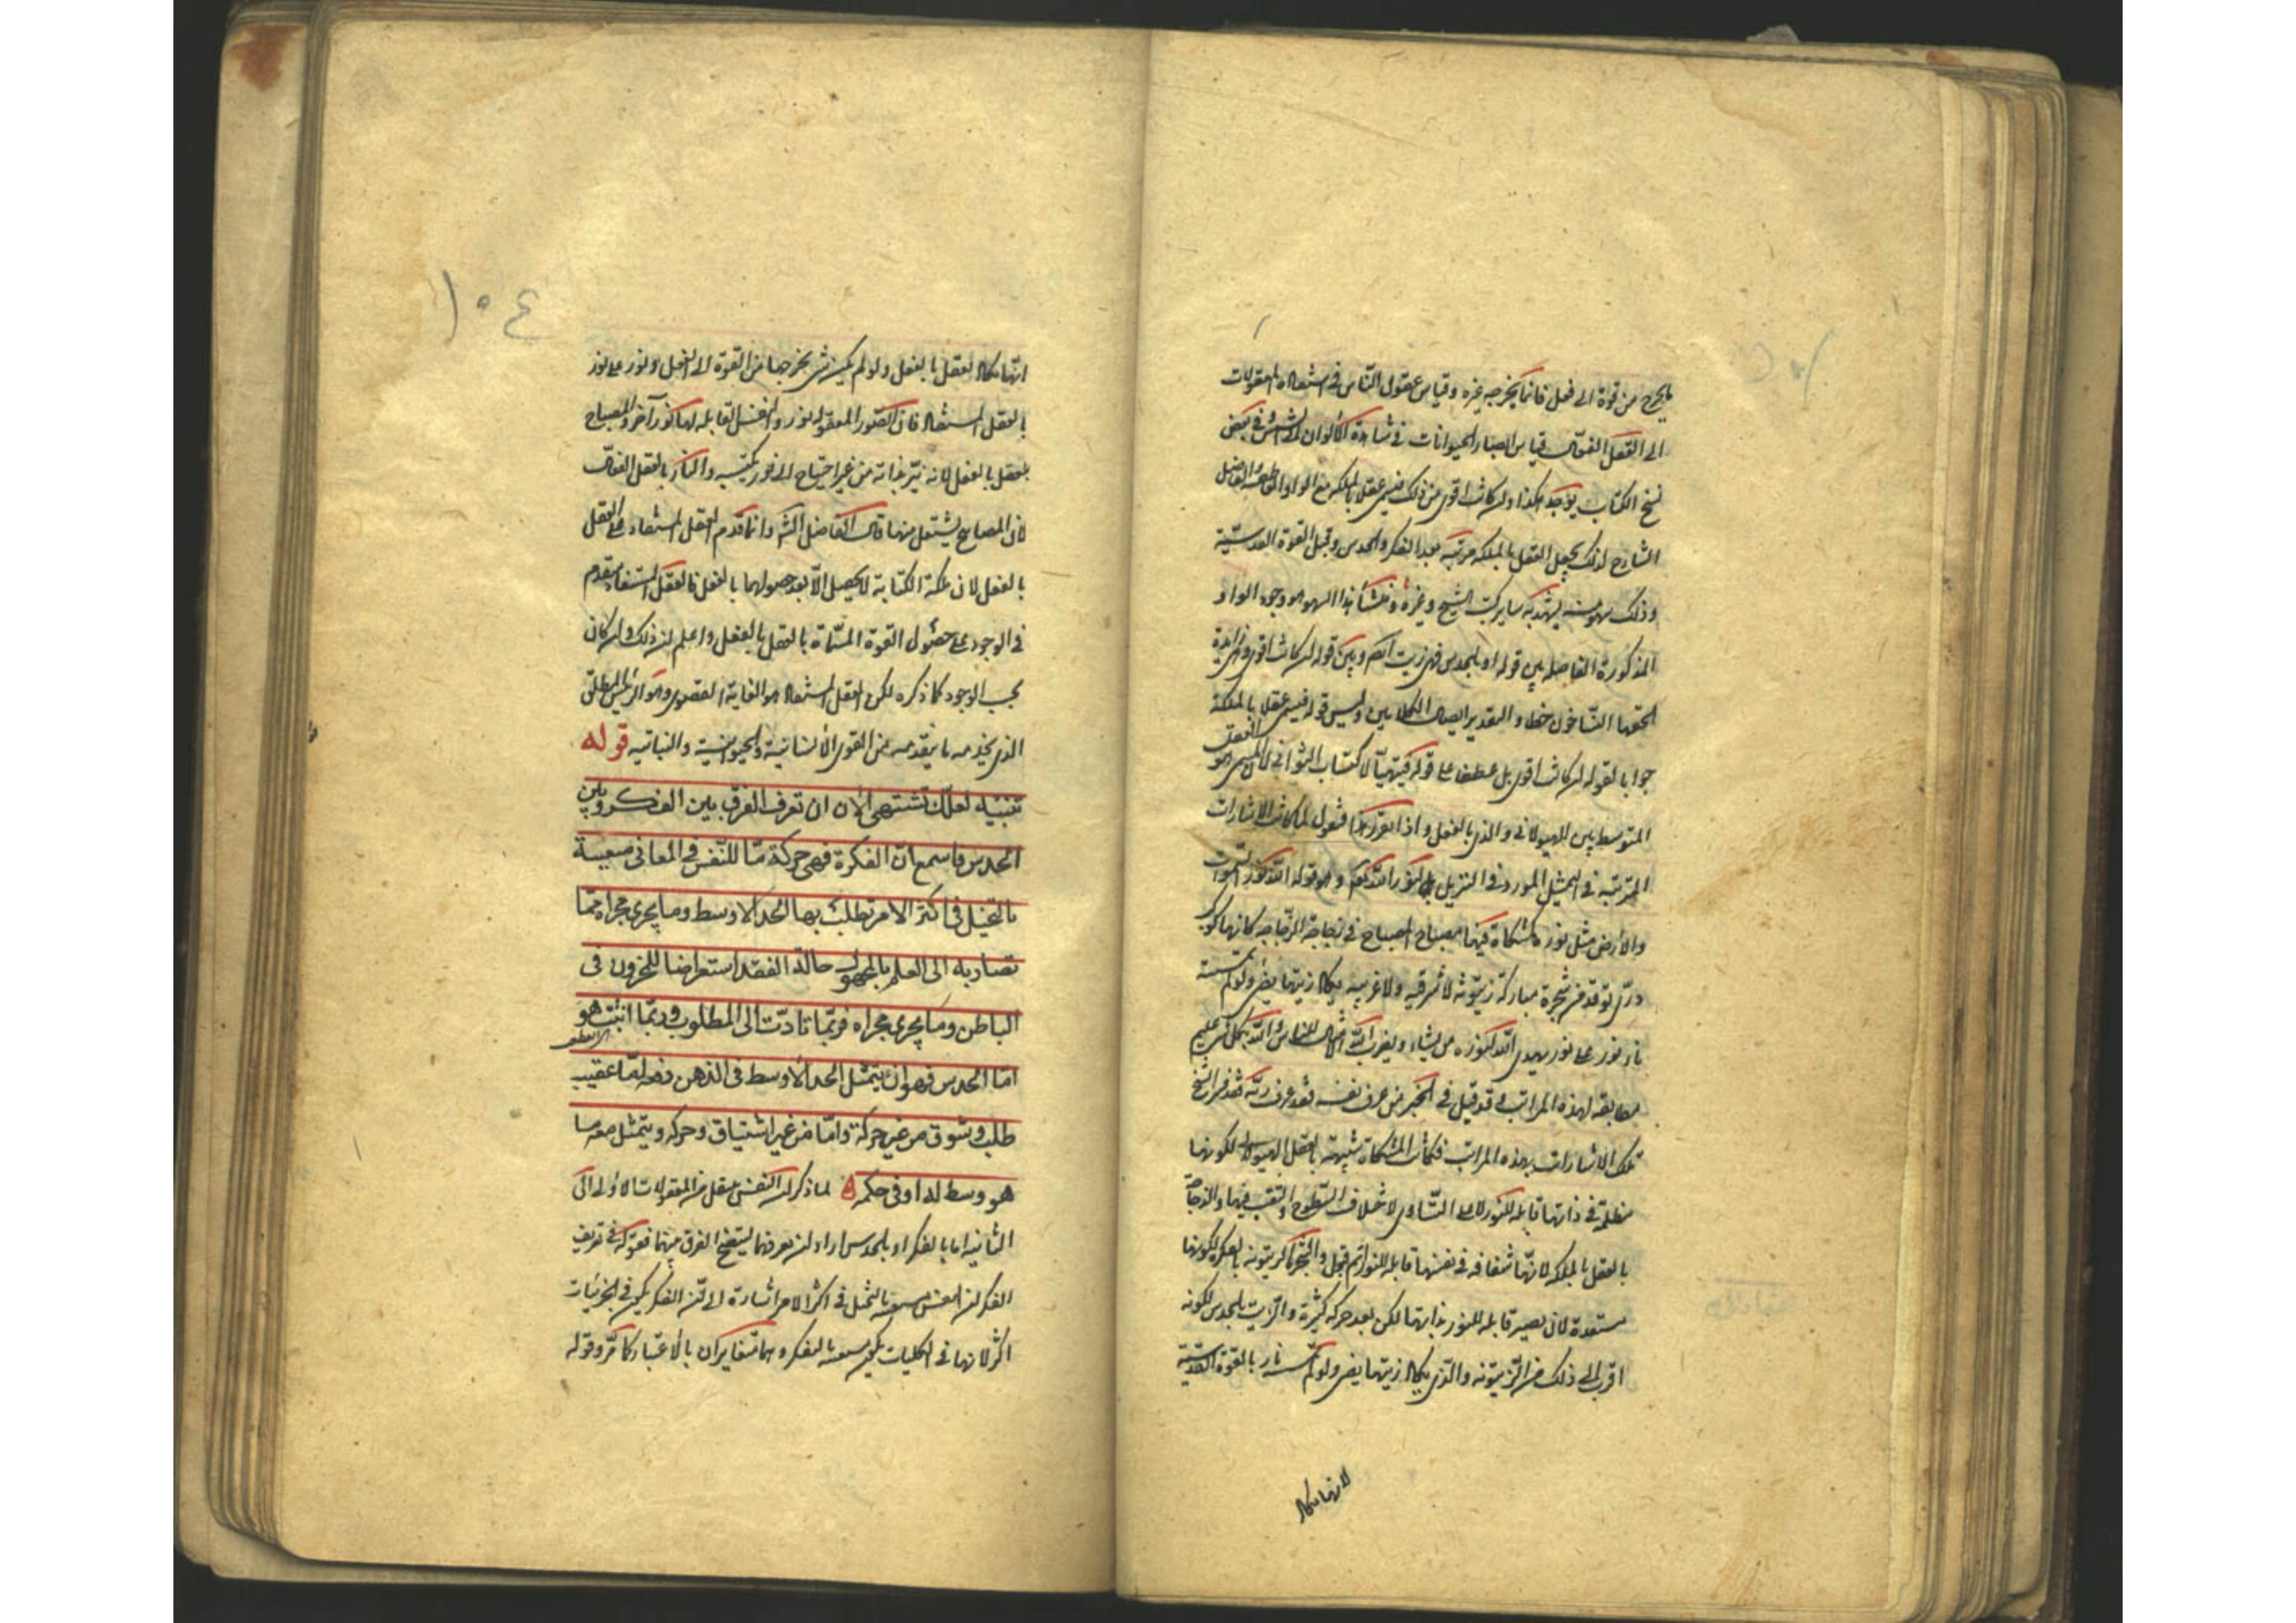 ما يخرج من قوة الى فعل فانما يخرجه غيره وقياس عقول الناس فى استفادة المعقولات
الى العقل الفعال قياس ابصار الحيوانات فى مشاهدة الألوان الى الشمس وفى بعض
نسخ الكتاب يوجد هكذا وان كانت اقوى من ذلك فيسمى عقلا بالملكة مع الواو العاطفة والفاضل
الشارح لذلك يجعل العقل بالملكة مرتبة بعد الفكر والحدس وقبل القوة القدسية
وذلك سهو منه يشهد به ساير كتب الشيخ وغيره ومنشأ هذا السهو هو وجود الواو
المذكورة الفاصلة بين قوله او بالحدس فهى زيت ايضا وبين قوله ان كانت اقوى وهى زايدة
الحقها الناسخون خطا والتقدير ايصال الكلامين وليس قوله فيسمى عقلا بالملكة
جوابا لقوله ان كانت اقوى بل عطف على قوله فيتهيأ لاكتساب الثوانى لان المسمى هو العقل
المتوسط بين الهيولانى والذى بالفعل واذا تقرر هذا فنقول لما كانت الاشارات
المترتبة فى التمثيل المورد فى التنزيل لنور الله تعالى وهو قوله الله نور السموات
والارض مثل نوره كمشكاة فيها مصباح المصباح فى زجاجة الزجاجة كانها كوكب
درى يوقد من شجرة مباركة زيتونة لا شرقية ولا غربية يكاد زيتها يضىء ولو لم تمسسه
نار نور على نور يهدى الله لنوره من يشاء ويضرب الله الامثال للناس والله بكل شىء عليم
مطابقة لهذه المراتب وقد قيل فى الخبر من عرف نفسه فقد عرف ربه فقد فسر الشيخ
تلك الاشارات بهذه المراتب فكانت المشكاة شبيهة بالعقل الهيولانى لكونها
مظلمة فى ذاتها قابلة للنور لا على التساوى لاختلاف السطوح والثقب فيها والزجاجة
بالعقل بالملكة لانها شفافة فى نفسها قابلة للنور اتم قبول والشجرة الزيتونة بالفكرة لكونها
مستعدة لان تصير قابلة للنور بذاتها لكن بعد حركة كثيرة والزيت بالحدس لكونه
اقرب الى ذلك من الزيتونة والذى يكاد زيتها يضىء ولو لم تمسسه نار بالقوة القدسية
لانها تكاد
١٠٤
انها تكاد تعقل بالفعل ولو لم يكن شىء يخرجها من القوة الى الفعل ونور على نور
بالعقل المستفاد فان الصور المعقولة نور والنفس القابلة لها نور آخر والمصباح
بالعقل بالفعل لانه نير بذاته من غير احتياج الى نور يكتسبه والنار بالعقل الفعال
لان المصابيح يشتعل منها قال الفاضل الشارح وانما قدم العقل المستفاد على العقل
بالفعل لان ملكة الكتابة لا يحصل الا بعد حصولها بالفعل فالعقل المستفاد متقدم
فى الوجود على حصول القوة المسماة بالعقل بالفعل واعلم ان ذلك وان كان
بحسب الوجود كما ذكره لكن العقل المستفاد هو الغاية القصوى وهو الرئيس المطلق
الذى يخدمه ما يتقدمه من القوى الانسانية والحيوانية والنباتية قوله
تنبيه لعلك تشتهى الآن ان تعرف الفرق بين الفكر وبين
الحدس فاسمع ان الفكرة فهى حركة ما للنفس فى المعانى مستعينة
بالتخيل فى اكثر الامر تطلب بها الحد الاوسط وما يجرى مجراه مما
تصار به الى العلم بالمجهول حالة الفقد استعراضا للمخزون فى
الباطن وما يجرى مجراه فربما تادت الى المطلوب وربما انبتت هو
اما الحدس فهو ان يتمثل الحد الاوسط فى الذهن دفعة اما عقيب
طلب وشوق من غير حركة واما من غير اشتياق وحركة ويتمثل معه ما
هو وسط له او فى حكمه لما ذكر ان النفس تنتقل من المعقولات الاولى الى
الثانية اما بالفكر او بالحدس اراد ان يعرفهما ليتضح الفرق بينهما فقوله فى تعريف
الفكر ان النفس مستعينة بالتخيل فى اكثر الامر اشارة الى ان الفكر يكون فى الجزئيات
اكثر لانها فى الكليات يكون مستعينة بالفكر وهما متغايران بالاعتبار كما مر وقوله